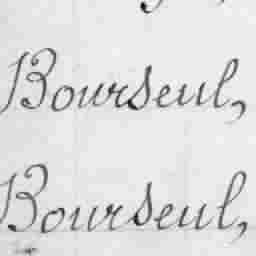 Bourseul,
Bourseul,